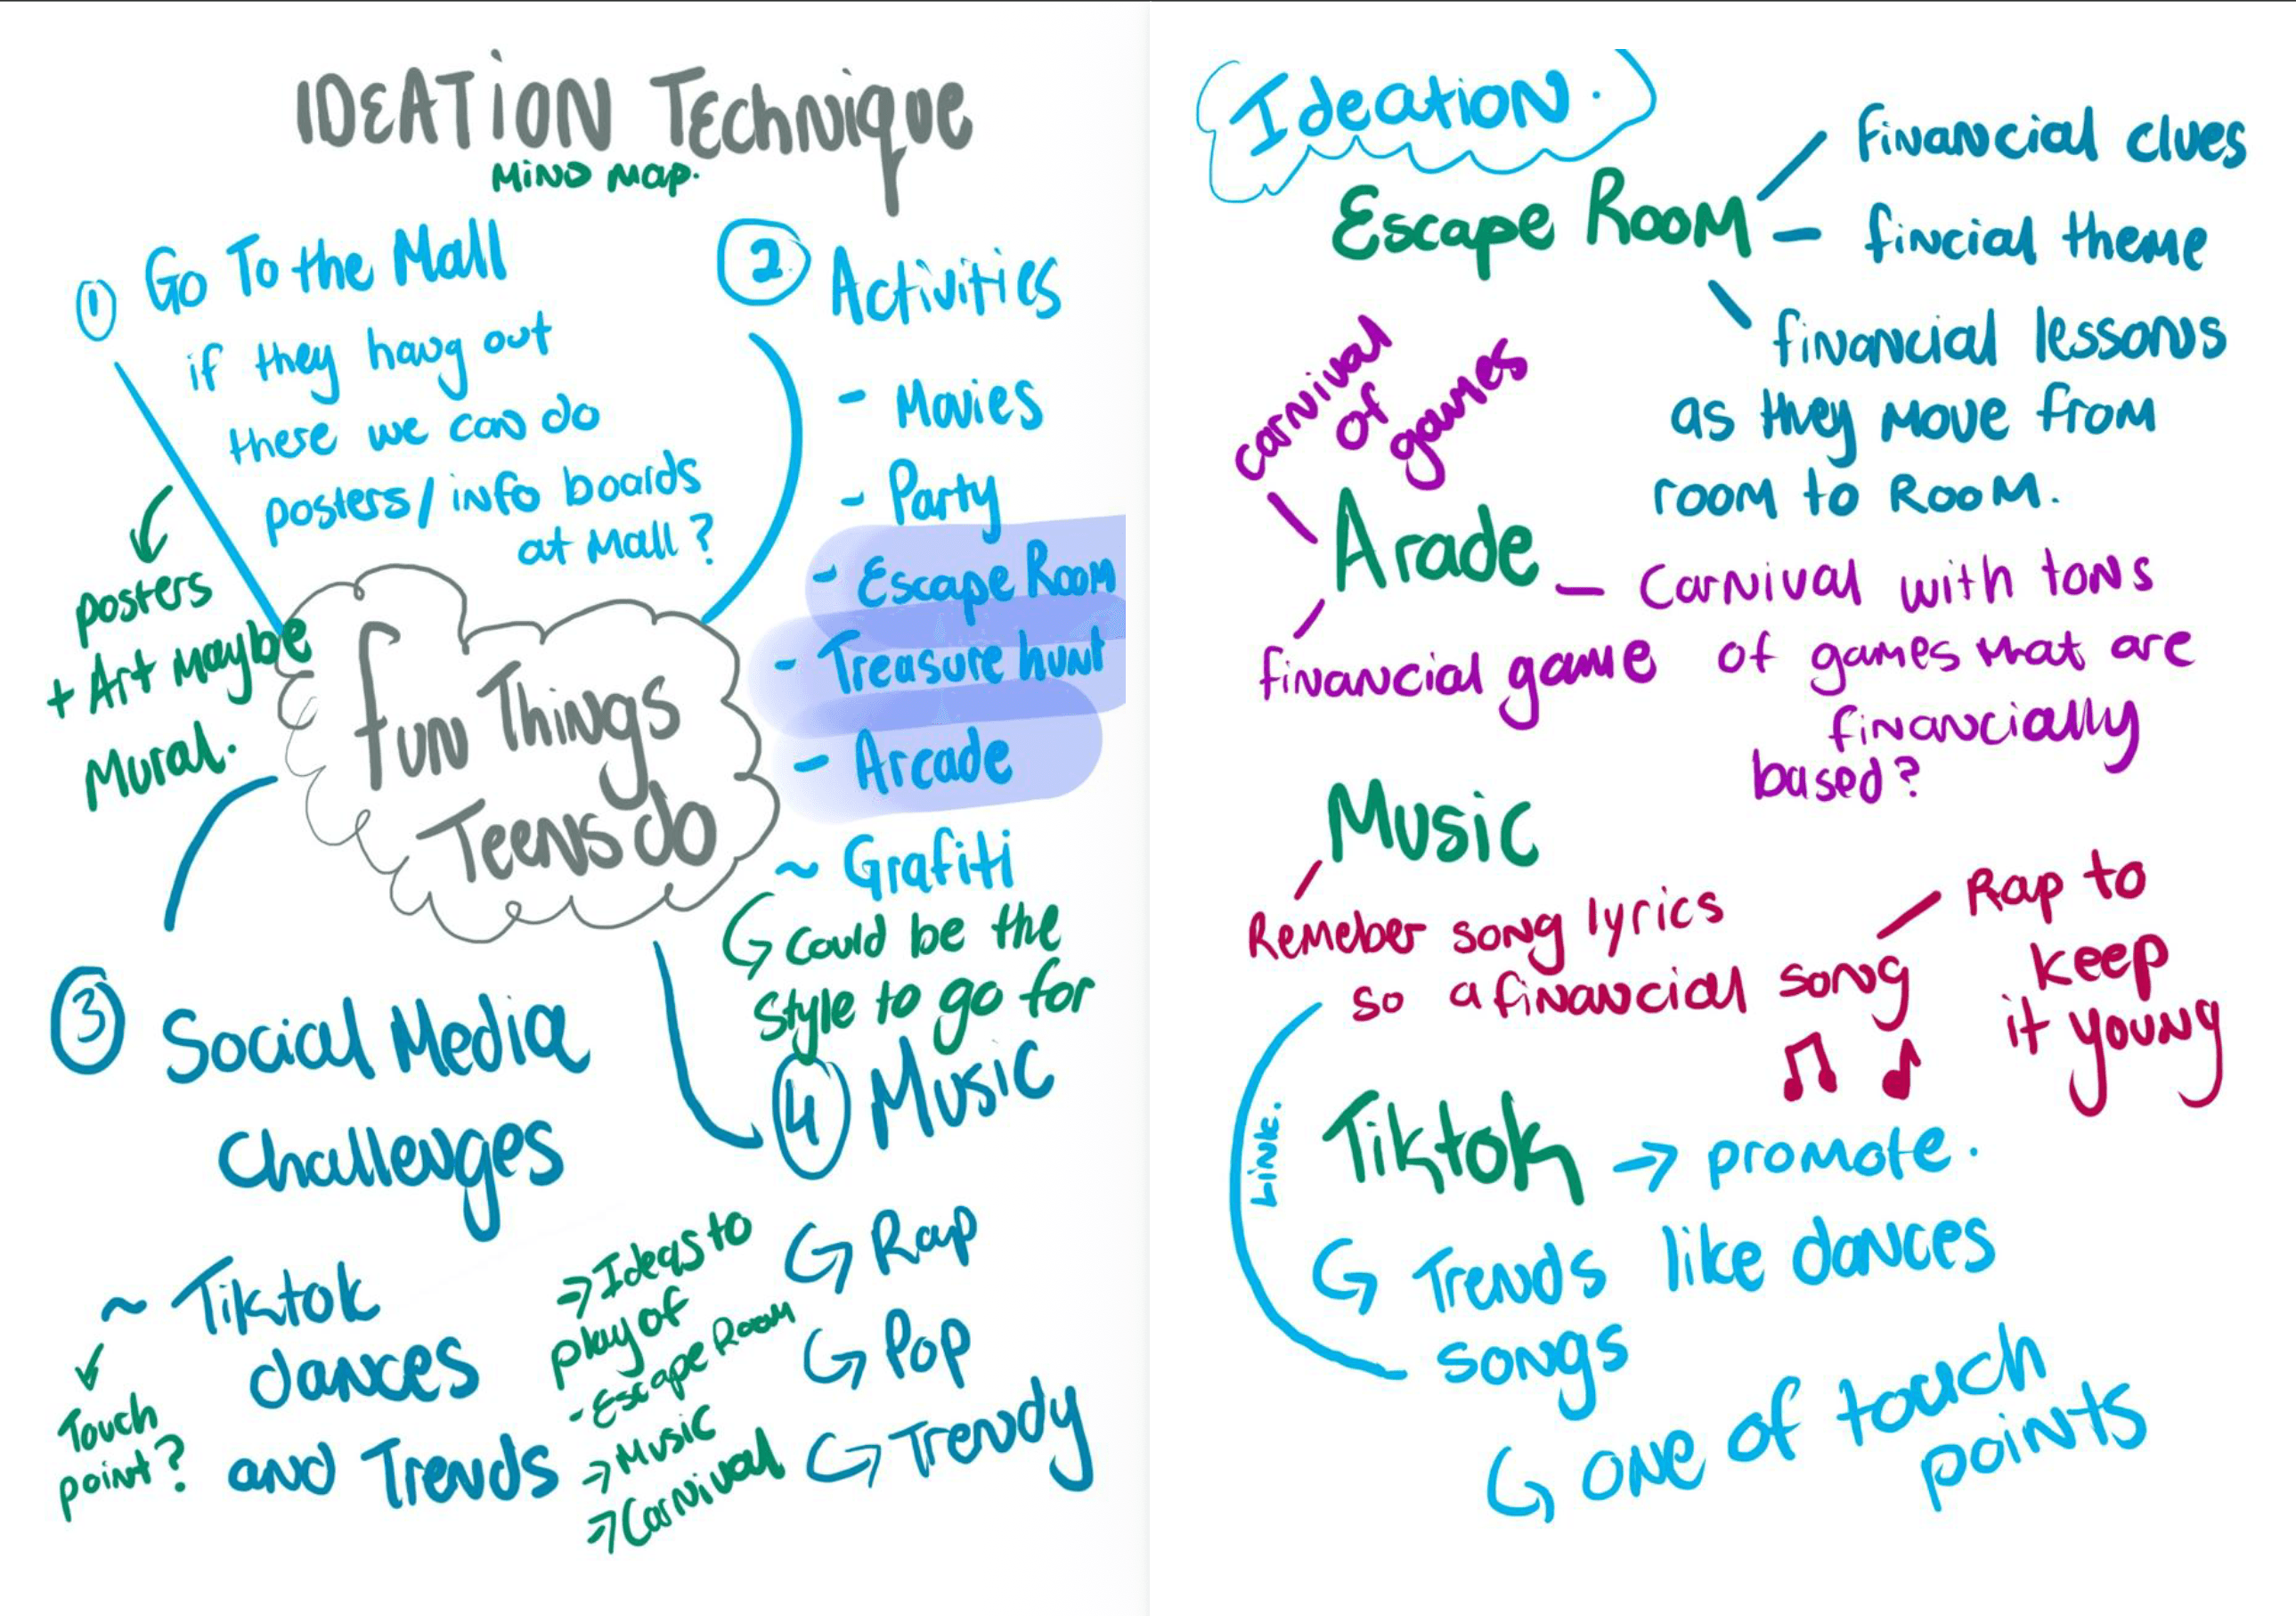 IDEATION Technique
Mind Map.
① Go To the Mall
if they hang out
these we can do
posters / info boards
at Mall ?
posters
+ Art maybe
Mural.
Fun Things
Teens do
② Activities
- Movies
- Party
- Escape Room
- Treasure hunt
- Arcade
~ Grafiti
Could be the
style to go for
③ Social Media
Challenges
~ Tiktok
dances
and Trends
Touch
point?
→ Ideas to
play of
- Escape Room
→ Music
→ Carnival
④ Music
Rap
Pop
Trendy
Ideation.
Escape Room
Financial clues
- fincial theme
financial lessons
as they move from
room to Room.
carnival
of
games
Arade
- Carnival with tons
of games that are
financially
based?
financial game
Music
Remeber song lyrics
so a financial song
Rap to
keep
it young
Link.
Tiktok → promote.
Trends like dances
songs
one of touch
points